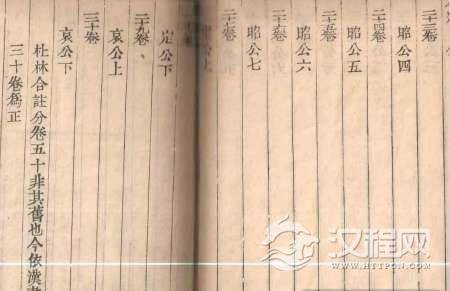 二十三卷
昭公四
二十四卷
昭公五
二十五卷
昭公六
二十六卷
昭公七
定公下
二十九卷
哀公上
三十卷
哀公下
杜林合註分卷五十非其舊也今依漢書
三十卷爲正
汉程网
WWW.HTTPCN.COM